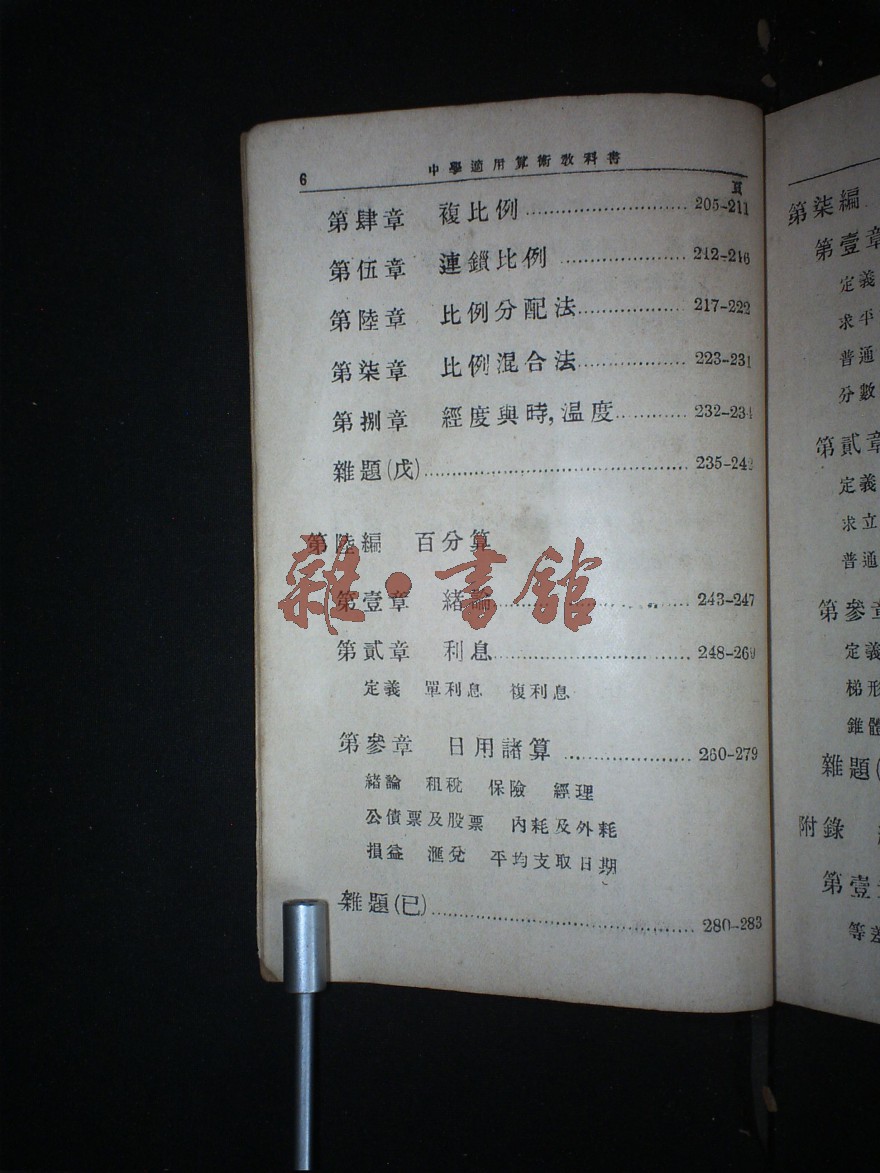 6 中學適用算術教科書
頁
第肆章 複比例 205-211
第伍章 連鎖比例 212-216
第陸章 比例分配法 217-222
第柒章 比例混合法 223-231
第捌章 經度與時,溫度 232-234
雜題(戊) 235-242
第陸編 百分算
第壹章 緒論 243-247
第貳章 利息 248-269
定義 單利息 複利息
第參章 日用諸算 260-279
緒論 租稅 保險 經理
公債票及股票 內耗及外耗
損益 滙兌 平均支取日期
雜題(已) 280-283
雜·書館
第柒編
第壹章
定義
求平
普通
分數
第貳章
定義
求立
普通
第參章
定義
梯形
錐體
雜題(
附錄
第壹
等差